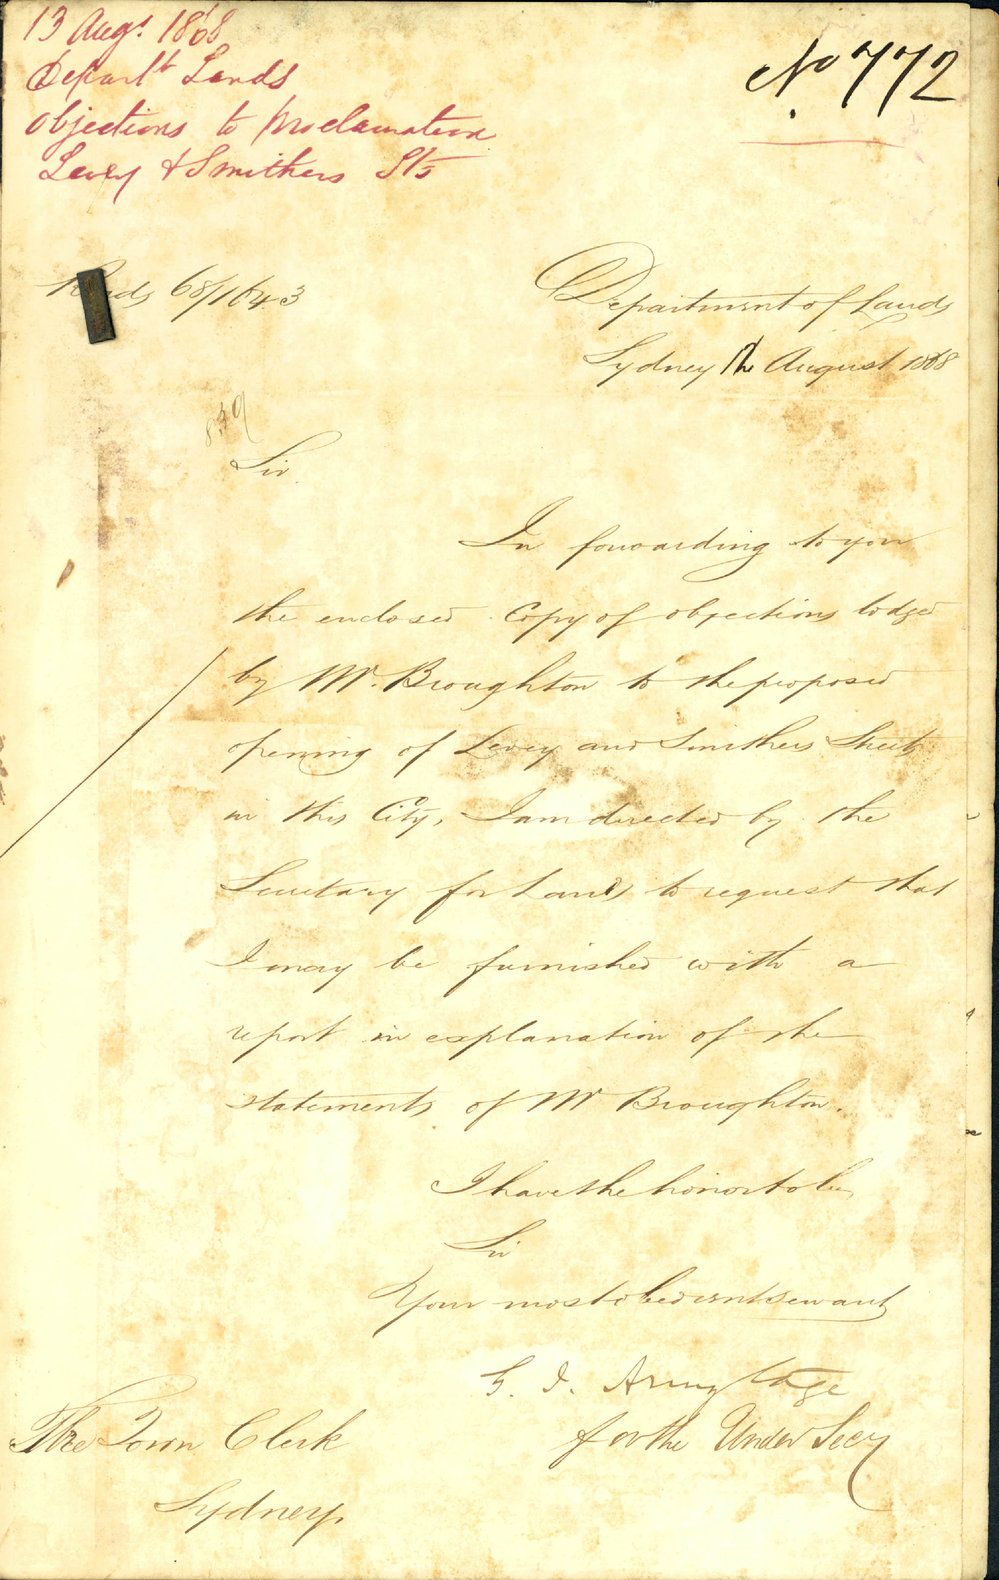 13 Augt. 1868
Departt Lands
Objections to proclamation
Levey & Smithers Sts
No 772
Roads 68/1643
Department of Lands
Sydney August 1868
849
Sir
In forwarding to you
the enclosed Copy of objections lodged
by Mr. Broughton to the proposed
opening of Levey and Smithers Streets
in this City, I am directed by the
Secretary for Lands to request that
I may be furnished with a
report in explanation of the
statements of Mr Broughton.
I have the honor to be,
Sir
Your most obedient servant
Armytage
for the Under Secy
The Town Clerk
Sydney.